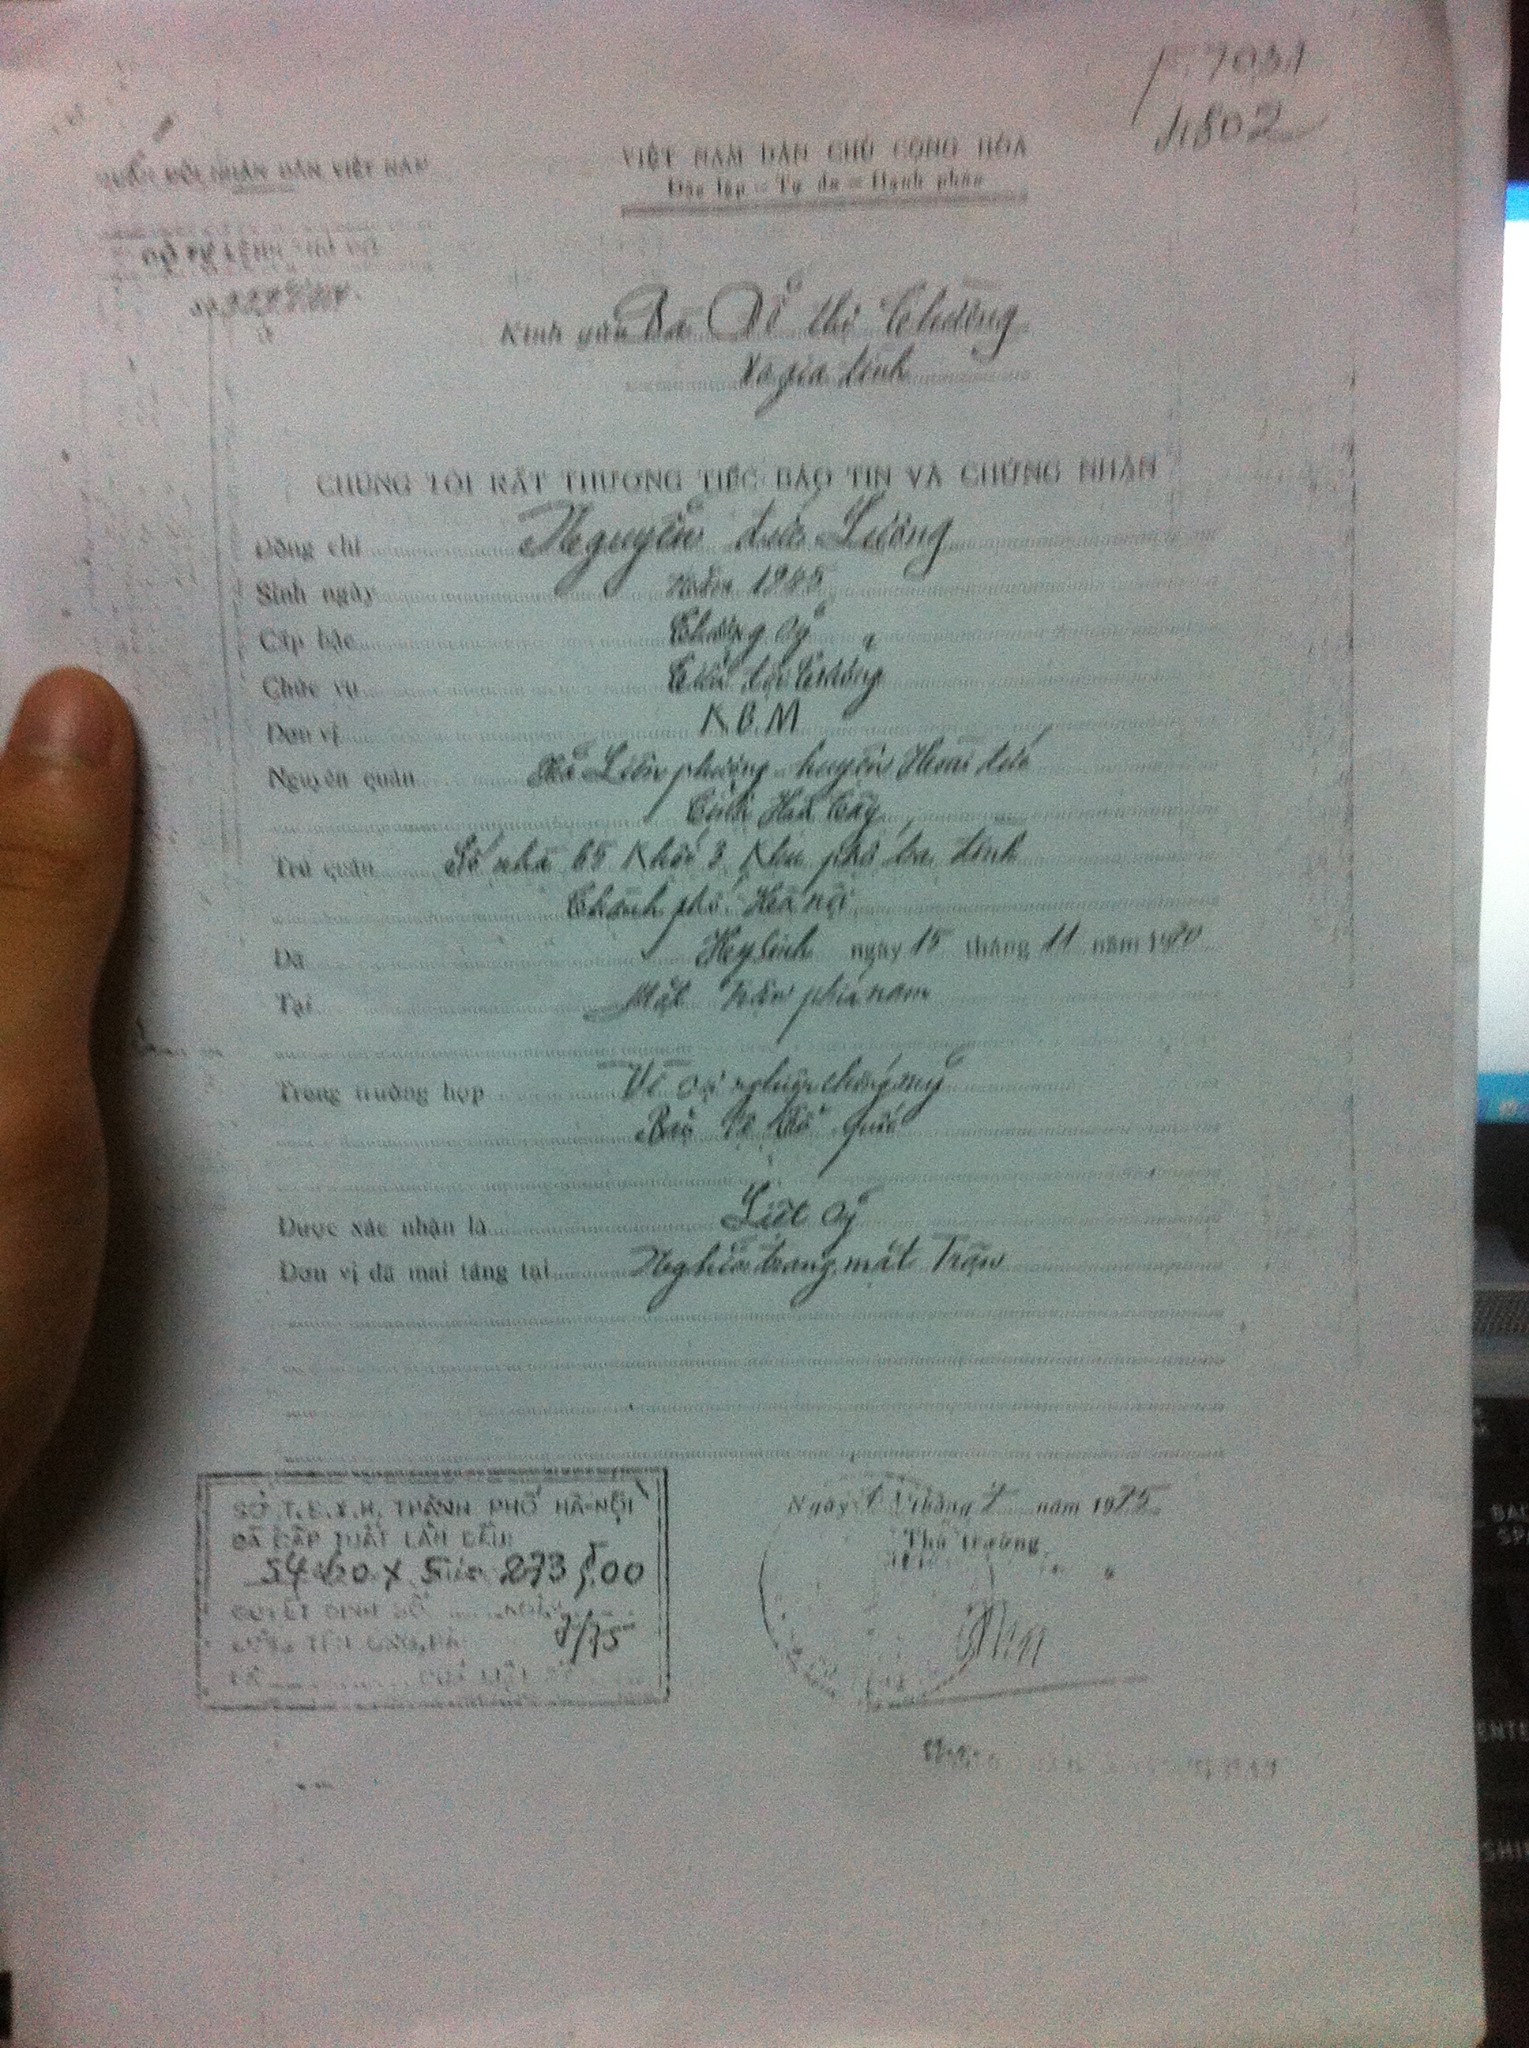 7031
1802
QUÂN ĐỘI NHÂN DÂN VIỆT NAM
VIỆT NAM DÂN CHỦ CỘNG HÒA
Độc lập - Tự do - Hạnh phúc
BỘ TƯ LỆNH
Kính gửi Bà Đỗ thị
Và gia đình
CHÚNG TÔI RẤT THƯƠNG TIẾC BÁO TIN VÀ CHỨNG NHẬN
Đồng chí Nguyễn đức Lương
Sinh ngày Năm 1945
Cấp bậc Thượng sỹ
Chức vụ Tiểu đội trưởng
Đơn vị K.B.M
Nguyên quán Xã Liên phương huyện Hoài đức
Tỉnh Hà Tây
Trú quán Số nhà 65 Khối 3 Khu phố ba đình
Thành phố Hà nội
Đã Hy sinh ngày 15 tháng 11 năm 1970
Tại Mặt trận phía nam
Trong trường hợp Vì sự nghiệp chống mỹ
Bảo vệ tổ quốc
Được xác nhận là Liệt sỹ
Đơn vị đã mai táng tại Nghĩa trang mặt Trận
SỞ T.B.X.H. THÀNH PHỐ HÀ-NỘI
ĐÃ CẤP TUẤT LẦN ĐẦU
273
QUYẾT ĐỊNH SỐ
/75
Ngày 1 tháng 7 năm 1975
Thủ trưởng